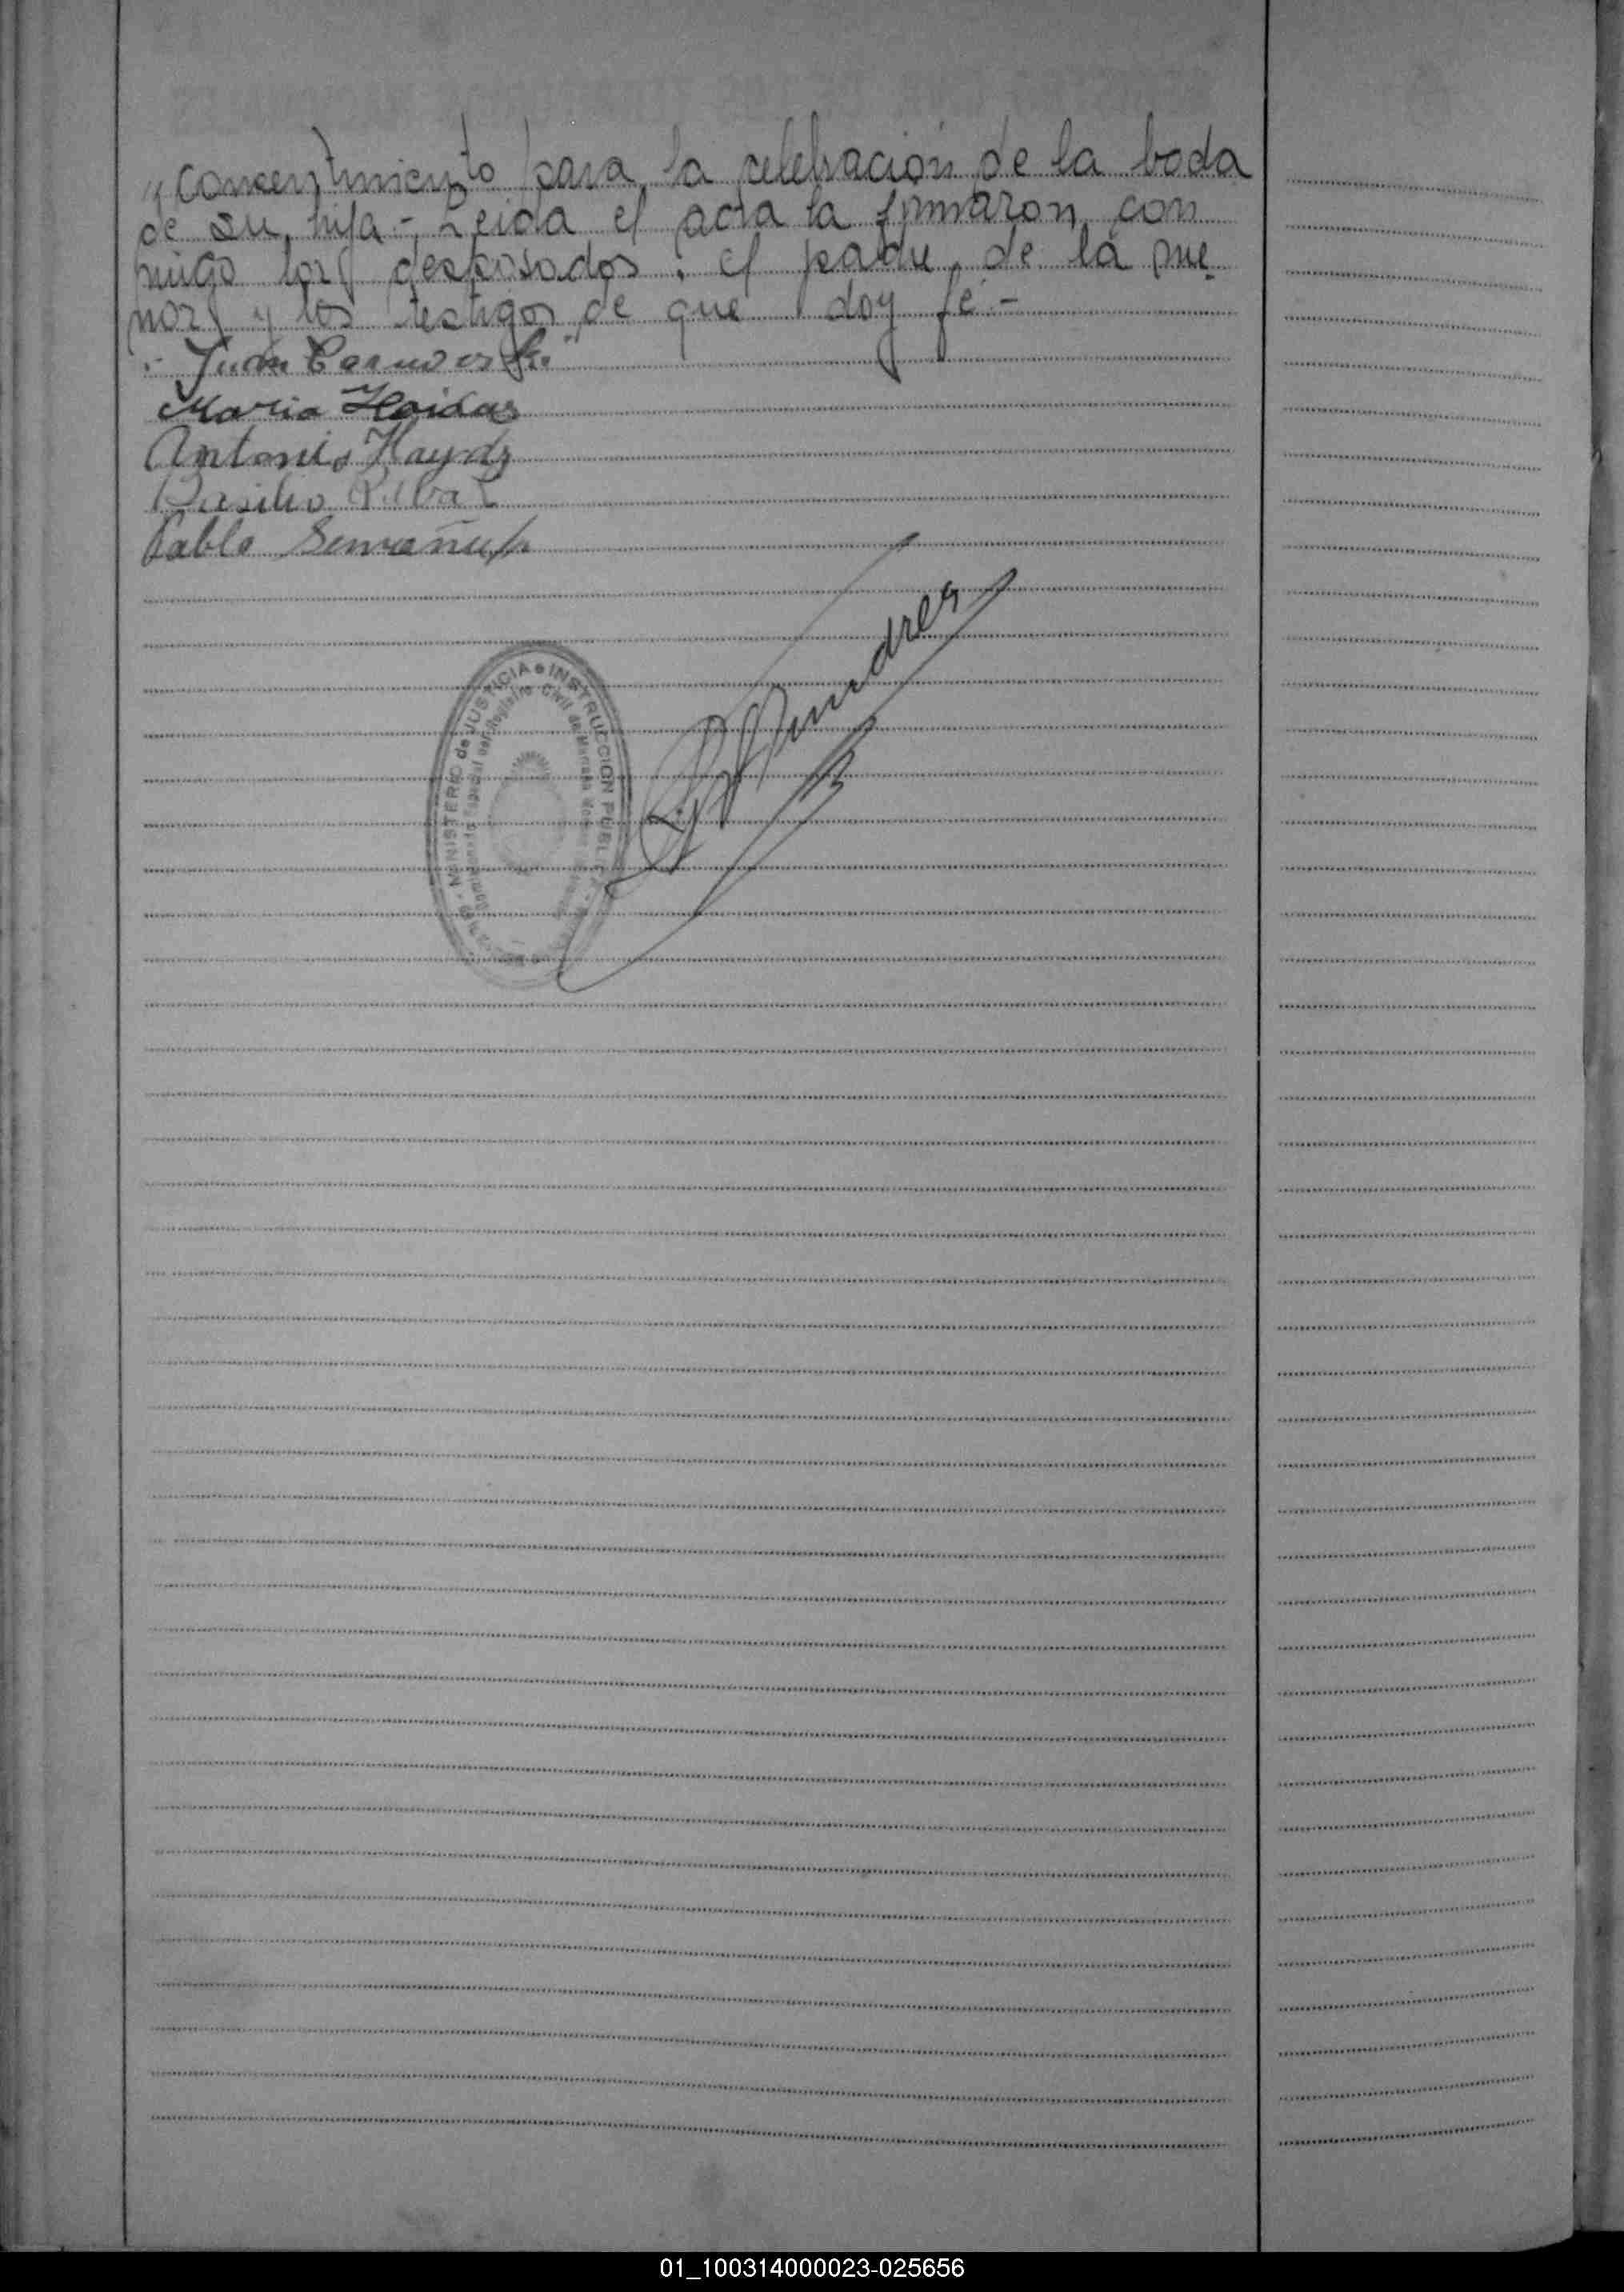 concentimiento para la celebración de la boda
de su hija -, Leida el acta la firmaron con
migo los desposados, el padre de la me
nor y los testigos de que doy fé.-
Juan
Maria Haidaz
Antonio Haydz
Basilio
Pablo
MINISTERIO de JUSTICIA e INSTRUCCION PUBLICA
Registro Civil de
01_100314000023-025656